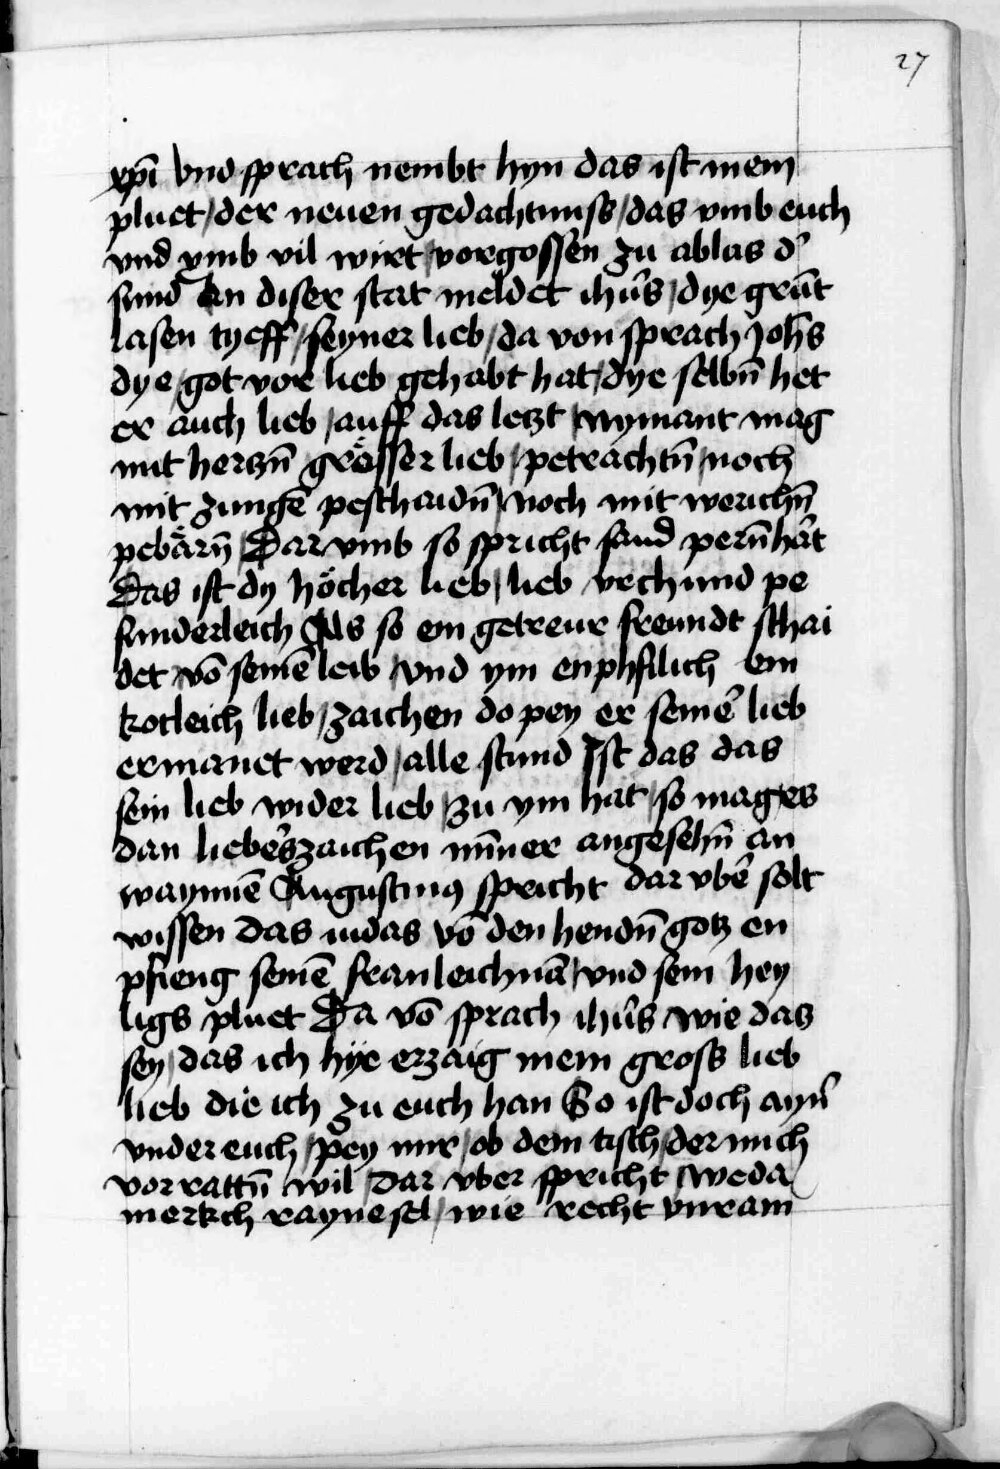 27
xpī vnd sprach nembt hyn das ist mein
pluet / der neuen gedachtnuss / das vmb euch
vnd vmb vil wirt / vorgossen zu ablas d'
sund An diser stat meldet ihūs / dye grūt
lasen tyeff / seyner lieb / da von sprach Joh̄s
dye / got vor lieb gehabt hat / dye selbn̄ het
er auch lieb / auff das letzt / nymant mag
mit hertzn̄ grösser lieb / petrachtn̄ / noch
mit zungē peschaidn̄ / noch mit werichn̄
pebärn̄ / Dar vmb so spricht sand pern̄hāt
Das ist dy höcher lieb / lieb vech vnd pe
sunderleich Als so ein getreur freundt schai
det / vō seinē leib / vnd ym enphilich ein
kotleich lieb / zaichen do pey er seinē lieb
ermanet werd / alle stund Ist das das
sein lieb wider lieb / zu ym hat / so mag es
dan liebes̄zaichen nīmer angesehn̄ an
waynnē Augustinus spricht dar vbē solt
wissen das iudas vō den hendn̄ gotz en
pfieng seinē franleichnā / vnd sein hey
ligs pluet Da vō sprach ihūs wie das
sey / das ich hye erzaig mein gross lieb
lieb die ich zu euch han So ist doch ayn̄
vnder euch / pey mir / ob dem tisch / der mich
vorrattn̄ wil / dar vber spricht / weda
merkch raynesel / wie recht vnram